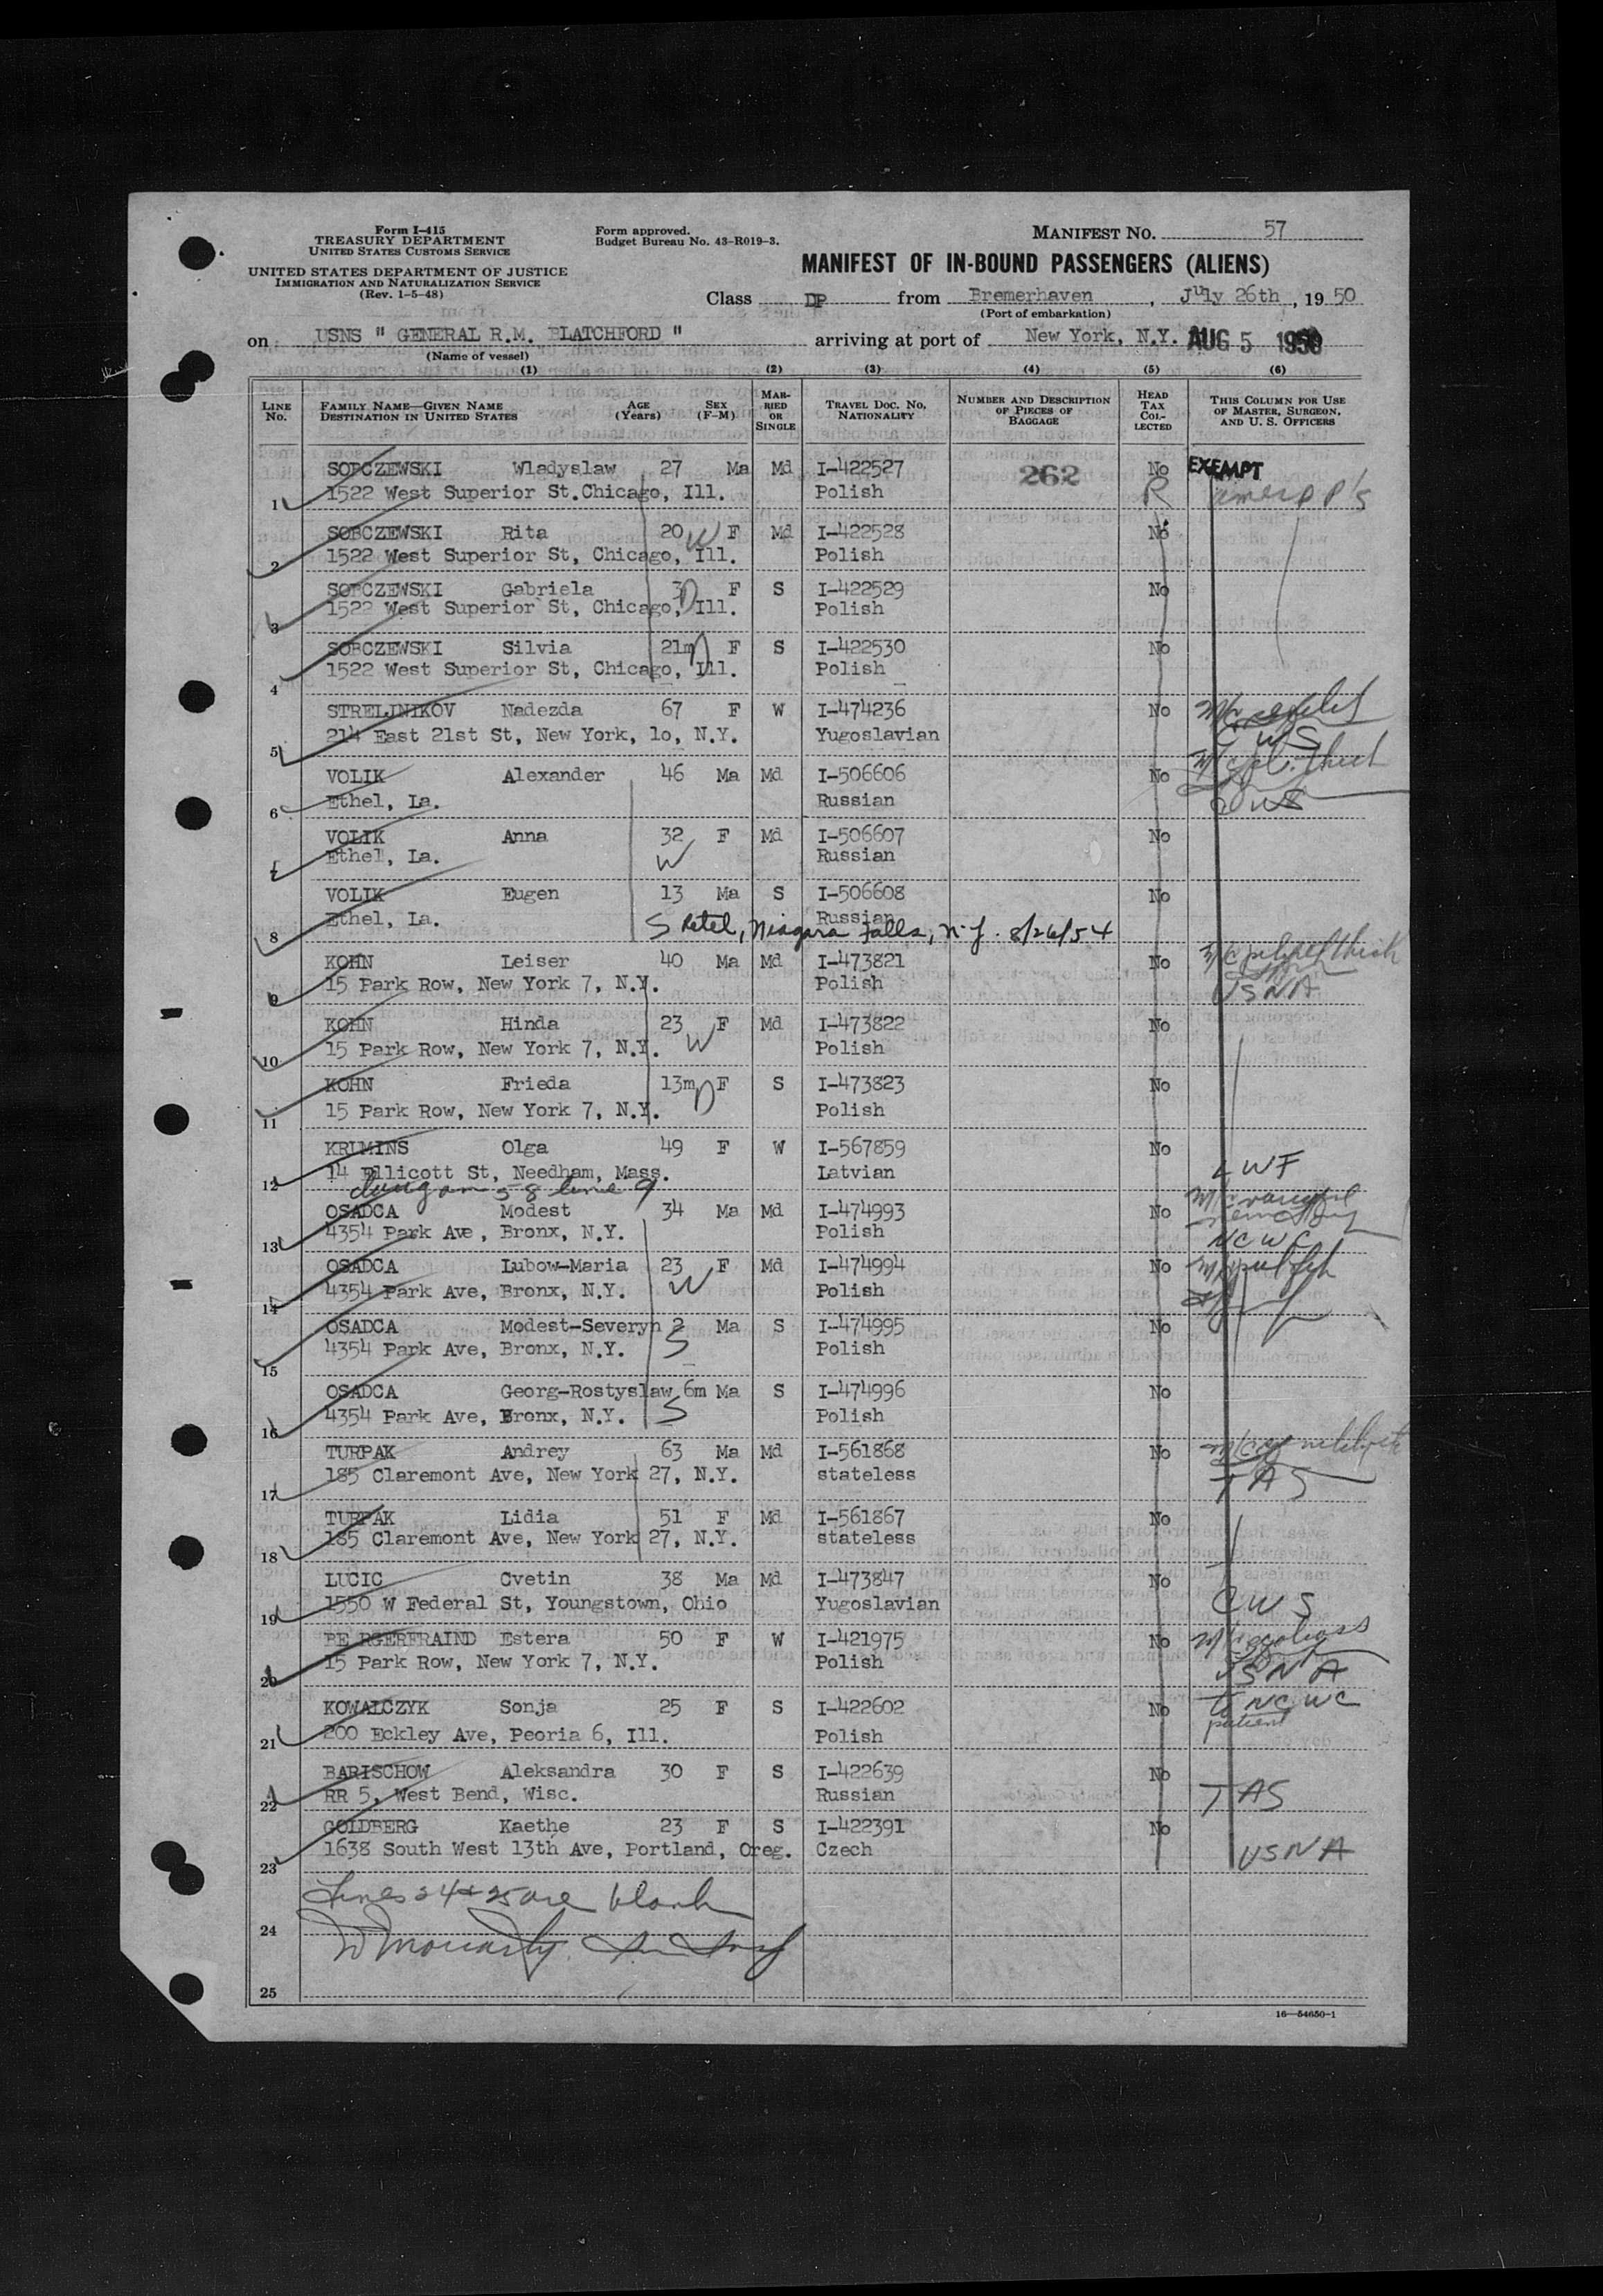 Form I-415
TREASURY DEPARTMENT
UNITED STATES CUSTOMS SERVICE
UNITED STATES DEPARTMENT OF JUSTICE
IMMIGRATION AND NATURALIZATION SERVICE
(Rev. 1-5-48)
Form approved.
Budget Bureau No. 43-R019-3.
MANIFEST NO. 57
MANIFEST OF IN-BOUND PASSENGERS (ALIENS)
Class DP from Bremerhaven, July 26th, 1950
(Port of embarkation)
on USNS " GENERAL R.M. BLATCHFORD " arriving at port of New York, N.Y. AUG 5 1950
(Name of vessel)
(1) (2) (3) (4) (5) (6)
LINE No. FAMILY NAME—GIVEN NAME DESTINATION IN UNITED STATES AGE (Years) SEX (F-M) MARRIED OR SINGLE TRAVEL DOC. NO. NATIONALITY NUMBER AND DESCRIPTION OF PIECES OF BAGGAGE HEAD TAX COLLECTED THIS COLUMN FOR USE OF MASTER, SURGEON, AND U. S. OFFICERS
SOBCZEWSKI Wladyslaw 27 Ma Md I-422527 262 No EXEMPT
1 1522 West Superior St.Chicago, Ill. Polish R
SOBCZEWSKI Rita 20 W F Md I-422528 No
2 1522 West Superior St, Chicago, Ill. Polish
SOBCZEWSKI Gabriela 3 D F S I-422529 No
3 1522 West Superior St, Chicago, Ill. Polish
SOBCZEWSKI Silvia 21m D F S I-422530 No
4 1522 West Superior St, Chicago, Ill. Polish
STRELJNIKOV Nadezda 67 F W I-474236 No
5 214 East 21st St, New York, 1o, N.Y. Yugoslavian CWS
VOLIK Alexander 46 Ma Md I-506606 No
6 Ethel, La. Russian CWS
VOLIK Anna 32 F Md I-506607 No
7 Ethel, La. W Russian
VOLIK Eugen 13 Ma S I-506608 No
8 Ethel, La. Russian
S Petel, Niagara Falls, N.Y. 8/26/54
KOHN Leiser 40 Ma Md I-473821 No
9 15 Park Row, New York 7, N.Y. Polish USNA
KOHN Hinda 23 W F Md I-473822 No
10 15 Park Row, New York 7, N.Y. Polish
KOHN Frieda 13m D F S I-473823 No
11 15 Park Row, New York 7, N.Y. Polish
KRIMINS Olga 49 F W I-567859 No
12 14 Ellicott St, Needham, Mass. Latvian LWF
58 line 9
OSADCA Modest 34 Ma Md I-474993 No
13 4354 Park Ave, Bronx, N.Y. Polish NCWC
OSADCA Lubow-Maria 23 F Md I-474994 No
14 4354 Park Ave, Bronx, N.Y. W Polish
OSADCA Modest-Severyn 2 Ma S I-474995 No
15 4354 Park Ave, Bronx, N.Y. S Polish
OSADCA Georg-Rostyslaw 6m Ma S I-474996 No
16 4354 Park Ave, Bronx, N.Y. S Polish
TURPAK Andrey 63 Ma Md I-561868 No
17 185 Claremont Ave, New York 27, N.Y. stateless TAS
TURPAK Lidia 51 F Md I-561867 No
18 185 Claremont Ave, New York 27, N.Y. stateless
LUCIC Cvetin 38 Ma Md I-473847 No
19 1550 W Federal St, Youngstown, Ohio Yugoslavian CWS
BE RGERFRAIND Estera 50 F W I-421975 No
20 15 Park Row, New York 7, N.Y. Polish USNA
KOWALCZYK Sonja 25 F S I-422602 No NCWC
21 200 Eckley Ave, Peoria 6, Ill. Polish patient
BARISCHOW Aleksandra 30 F S I-422639 No
22 RR 5, West Bend, Wisc. Russian TAS
GOLDBERG Kaethe 23 F S I-422391 No
23 1638 South West 13th Ave, Portland, Oreg. Czech USNA
Lines 24 + 25 are blank
24
25
16—54650-1